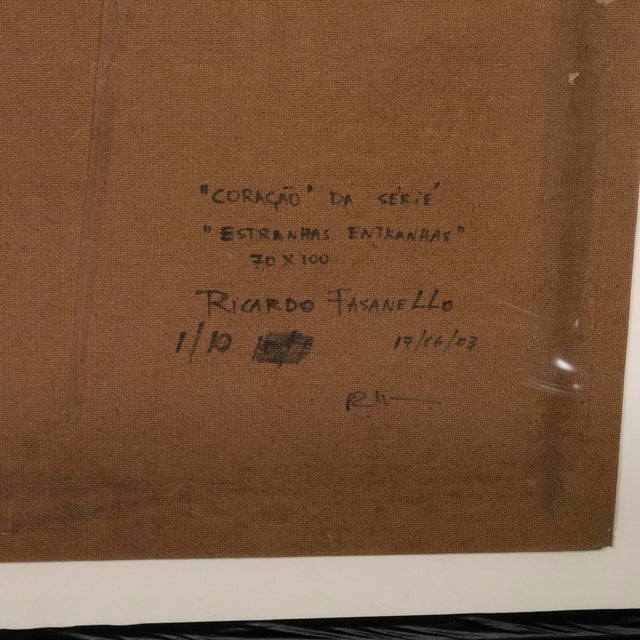 "CORAÇÃO" DA SÉRIE
"ESTRANHAS ENTRANHAS"
70 X 100
RICARDO FASANELLO
1/10 17/06/03